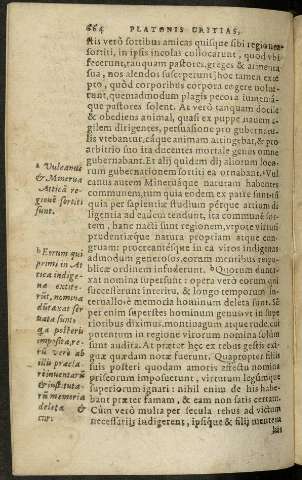 664 PLATONIS CRITIAS,
stis verò sortibus amicas quisque sibi regiones
sortiti, in ipsis incolas collocarunt, quod vbi
fecerunt, tanquam pastores, greges & armenta
sua, nos alendos susceperunt: hoc tamen exce
pto, quòd corporibus corpora cogere nolue-
runt, quemadmodum plagis pecora
que pastores solent. At verò tanquam docile
& obediens animal, quasi ex puppe nauem
gilem dirigentes, persuasione pro guberna-
lis vtebantur, eáque animam attingebāt, & pro
arbitrio suo ita ducentes mortale genus omne
gubernabant. Et alij quidem dij aliorum loco-
rum gubernationem sortiti ea ornabant. Vul
canus autem Mineruáque naturam habentes
communem, tum quia eodem ex patre sunt nati
quia per sapientiæ studium pérque artium di-
ligentia ad eadem tendunt, ita communē sor-
tem, hanc nacti sunt regionem, vtpote virtuti
prudentiæque natura propriam atque con-
gruam: procreatisque in ea viros indigenas
admodum generosos, eorum mentibus reipu-
blicæ ordinem infuderunt. b Quorum dunta-
xat nomina supersunt: opera verò eorum qui
successerunt interitu, & longo temporum in-
teruallo è memoria hominum deleta sunt. Su-
per enim superstes hominum genus, vt in supe
rioribus diximus, montiuagum atque rude, cum
potentum in regione virorum nomina solùm
sunt audita. At præter hæc ex rebus gestis exi-
guæ quædam notæ fuerunt. Quapropter filiis
suis posteri quodam amoris affectu nomina
priscorum imposuerunt, virtutum legísque
superiorum ignari: nihil enim de his habe-
bant præter famam, & eam non satis certam.
Cùm verò multa per secula rebus ad victum
necessariis indigerent, ipsíque & filij mentem
a Vulcanus
& Minerua
Atticā re-
gionē sortiti
sunt.
b Eorum qui
primi in At
tica indige-
na extite-
rūt, nomina
dūtaxat ser
uata sunt:
posteris
imposita, re-
rū verò ab
illis præcla-
rè
& instituta-
rū memoria
deleta &
cur.